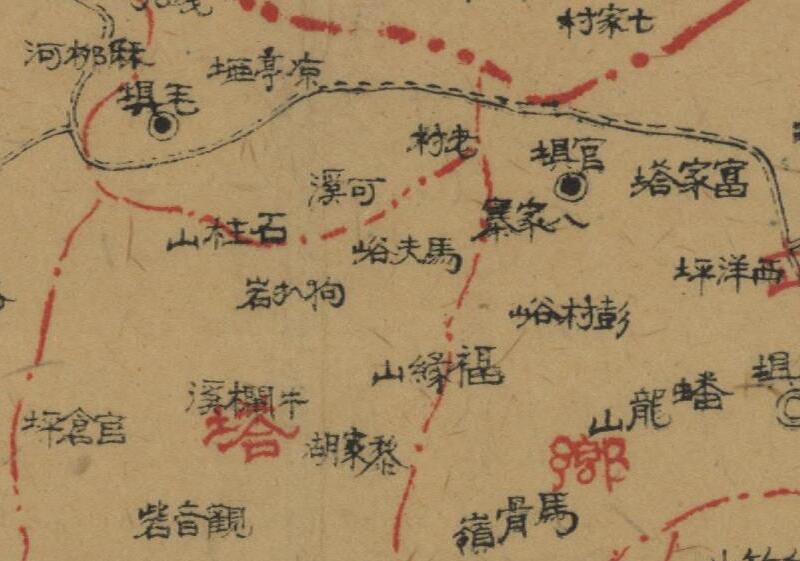 七家村
麻柳河
凉亭埡
毛埧
老村
官埧
富家塔
可溪
八家寨
石柱山
馬夫峪
西洋坪
狗扒岩
彭村峪
福緣山
蟠龍山
埧
牛欄溪
官倉坪
塔
黎家湖
鄉
觀音砦
馬骨嶺